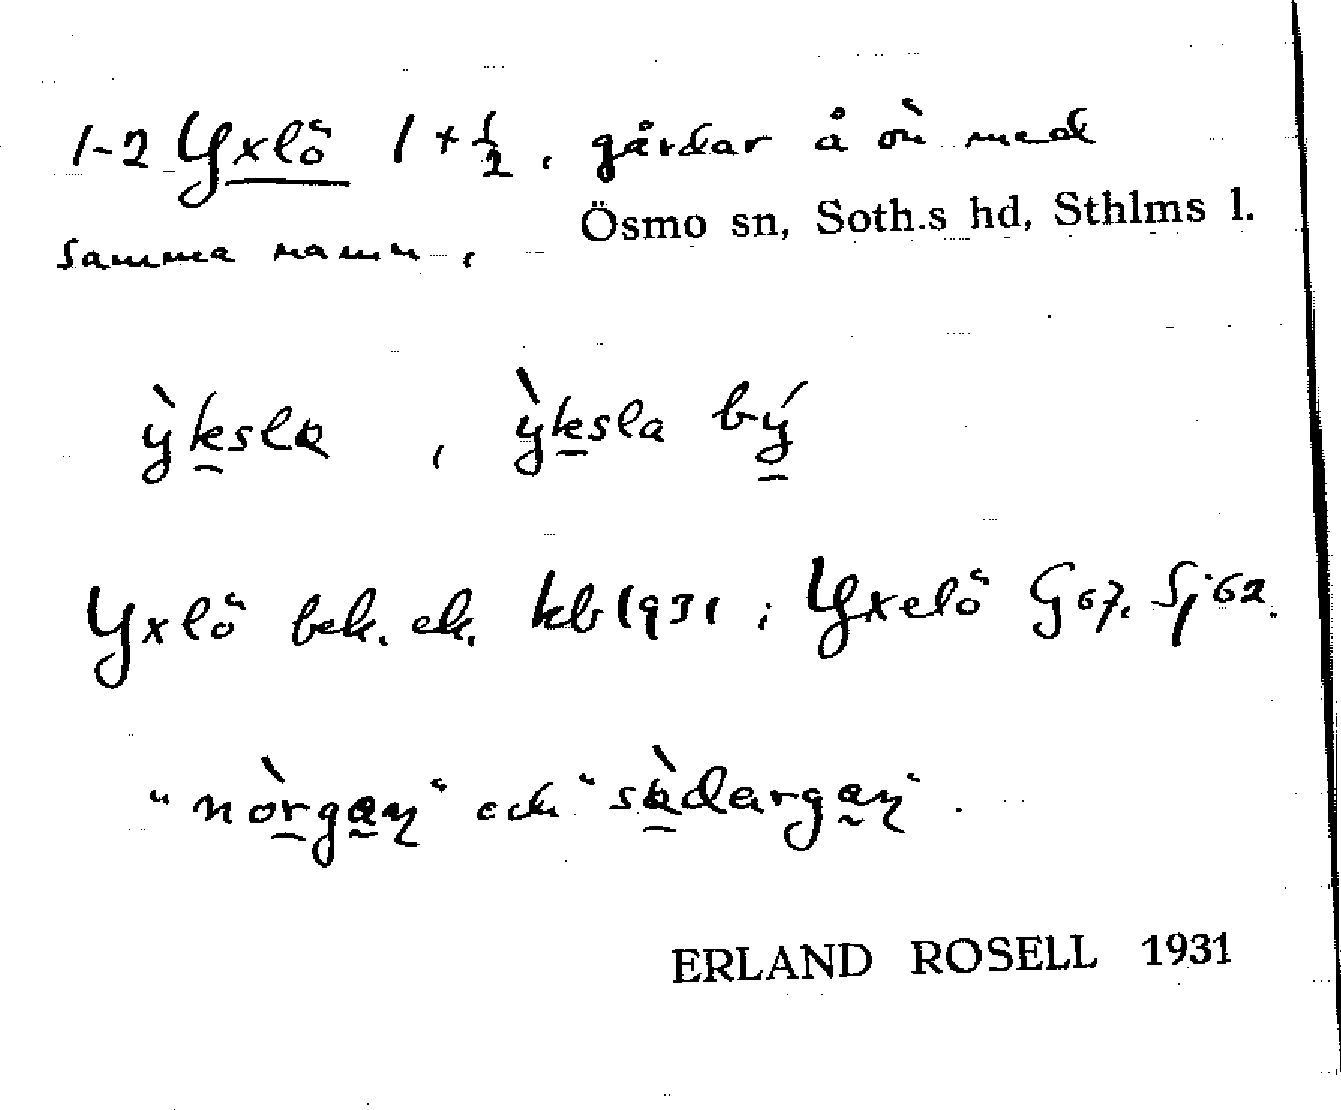 1-2 Yxlö 1 + 1/2, gårdar å ön med
Ösmo sn, Soth.s hd, Sthlms l.
samma namn,
ỳksla , ỳksla bý
Yxlö bek. ek. kb 1931 ; Yxelö G 67. Sj 62.
"nòrgaŋ" och "sàdargaŋ".
ERLAND ROSELL 1931